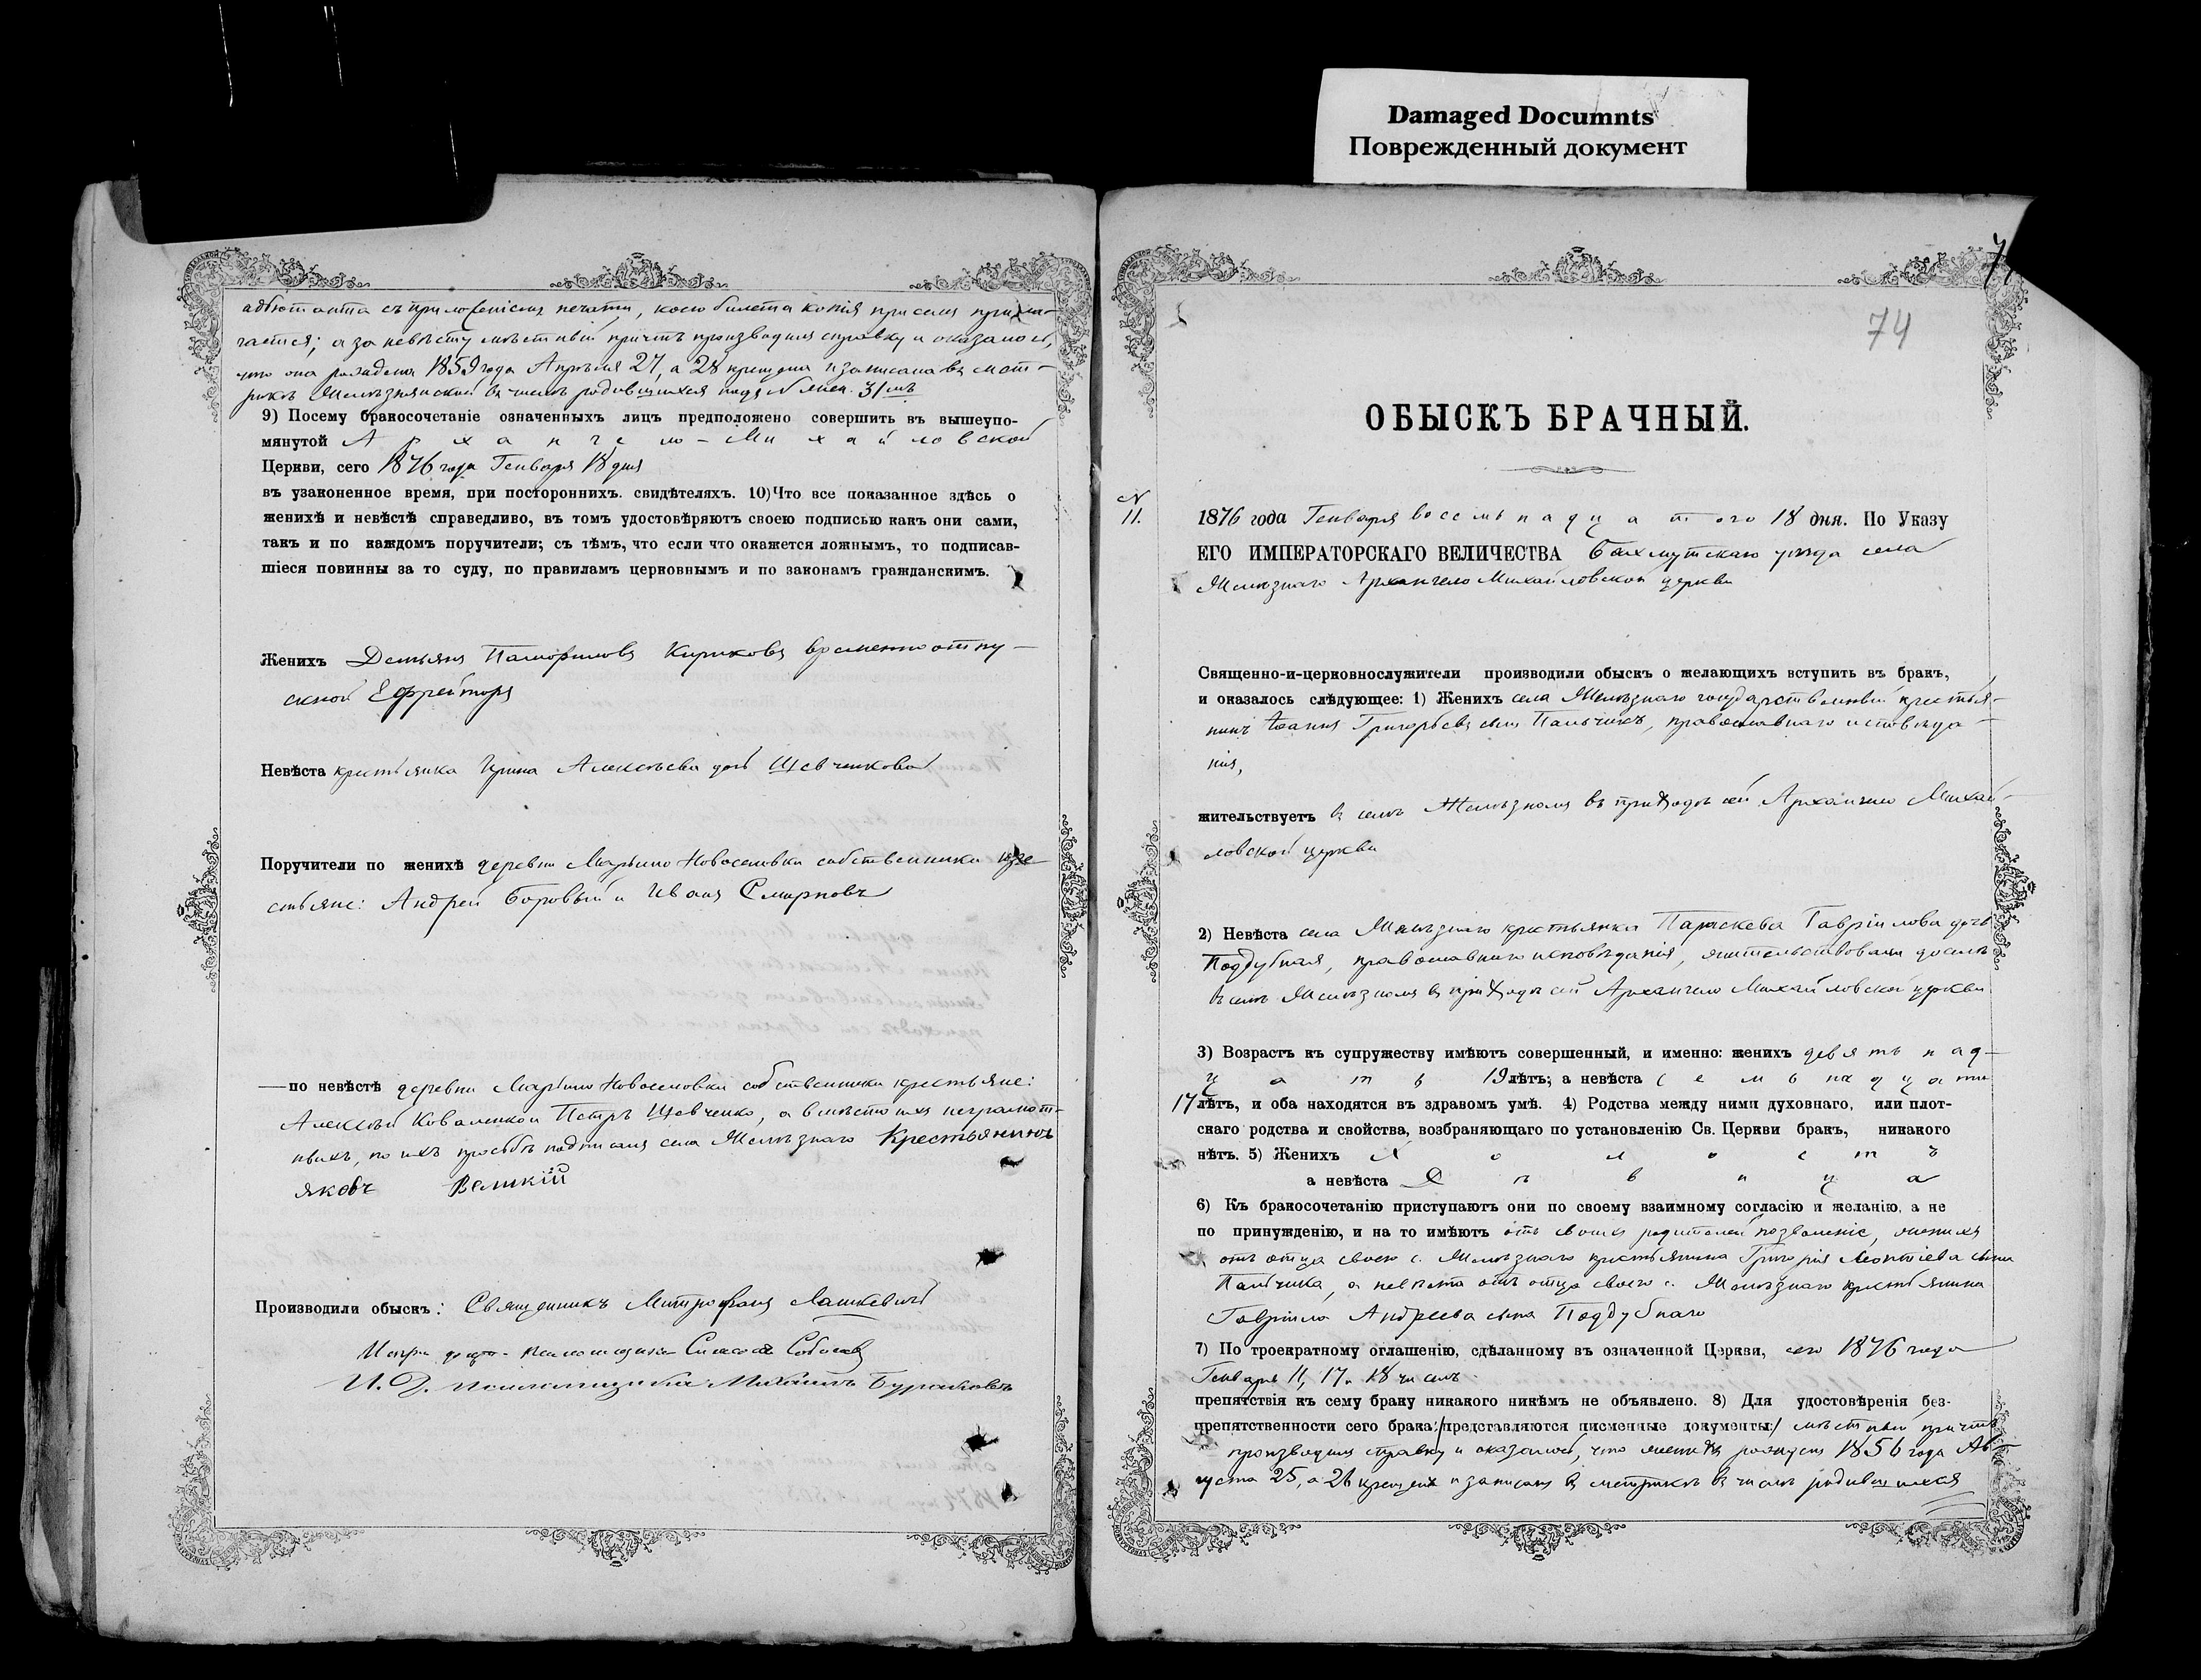 Damaged Documnts
Поврежденный документ
адъютанта съ приложеніемъ печати, коего билета копія при семъ прила-
гается; а за невѣсту мѣстный причтъ производилъ справку и оказалось,
что она рождена 1859 года Апрѣля 27, а 28 крещена и записана въ мет-
рикѣ Желѣзнянской въ числѣ родившихся подъ № жен. 31мъ
9) Посему бракосочетаніе означенныхъ лицъ предположено совершить въ вышеупо-
мянутой Архангело-Михайловской
Церкви, сего 1876 года Генваря 18 дня
въ узаконенное время, при постороннихъ. свидѣтеляхъ. 10) Что все показанное здѣсь о
женихѣ и невѣстѣ справедливо, въ томъ удостовѣряютъ своею подписью какъ они сами,
такъ и по каждомъ поручители; съ тѣмъ, что если что окажется ложнымъ, то подписав-
шіеся повинны за то суду, по правиламъ церковнымъ и по законамъ гражданскимъ.
Женихъ Демьянъ Памфиловъ Кириковъ временноотпу-
скной Ефрейторъ
Невѣста крестьянка Ирина Алексѣева дочь Шевченкова
Поручители по женихѣ деревни Марьино Новоселовки собственники кре-
стьяне: Андрей Боровый и Иванъ Смирновъ
— по невѣстѣ деревни Марьино Новоселовки собственники крестьяне:
Алексѣй Коваленко и Петръ Шевченко, а вмѣсто ихъ неграмот-
ныхъ, по ихъ просьбѣ подписался села Желѣзнаго Крестьянинъ
Яковъ Великій
Производили обыскъ: Священникъ Митрофанъ Лашкевичъ
псаломщика Соболевъ
И. Д. псаломщика Михаилъ Бураковъ
74
ОБЫСКЪ БРАЧНЫЙ.
N
11.
1876 года Генваря восемьнадцатого 18 дня. По Указу
ЕГО ИМПЕРАТОРСКАГО ВЕЛИЧЕСТВА Бахмутскаго уѣзда села
Желѣзнаго Архангело Михайловской церкви
Священно-и-церковнослужители производили обыскъ о желающихъ вступить въ бракъ,
и оказалось слѣдующее: 1) Женихъ села Желѣзнаго государственный крестья-
нинъ Іоаннъ Григорьевъ сынъ Пальчикъ, православнаго исповѣда-
нія,
жительствуетъ въ селѣ Желѣзномъ въ приходѣ сей Архангело Михай-
ловской церкви
2) Невѣста села Желѣзнаго крестьянка Параскева Гавріилова дочь
Поддубная, православнаго исповѣданія, жительствовала доселѣ
въ селѣ Желѣзномъ въ приходѣ сей Архангело Михайловской церкви
3) Возрастъ къ супружеству имѣютъ совершенный, и именно: женихъ девятьнад-
цать 19 лѣтъ; а невѣста семьнадцати
17 лѣтъ, и оба находятся въ здравомъ умѣ. 4) Родства между ними духовнаго, или плот-
скаго родства и свойства, возбраняющаго по установленію Св. Церкви бракъ, никакого
нѣтъ. 5) Женихъ Холостъ
а невѣста Дѣвица
6) Къ бракосочетанію приступаютъ они по своему взаимному согласію и желанію, а не
по принужденію, и на то имѣютъ отъ своихъ родителей позволеніе, женихъ
отъ отца своего с. Желѣзнаго крестьянина Григорія Леонтіева сына
Пальчика, а невѣста отъ отца своего с. Желѣзнаго крестьянина
Гавріила Андреева сына Поддубнаго
7) По троекратному оглашенію, сдѣланному въ означенной Церкви, сего 1876 года
Генваря 11, 17 и 18 чиселъ
препятствія къ сему браку никакого никѣмъ не объявлено. 8) Для удостовѣренія без-
препятственности сего брака: /представляются писменные документы:/ мѣстный причтъ
производилъ справку и оказалось, что женихъ рожденъ 1856 года Ав-
густа 25, а 26 крещенъ и записанъ въ метрикѣ въ числѣ родившихся